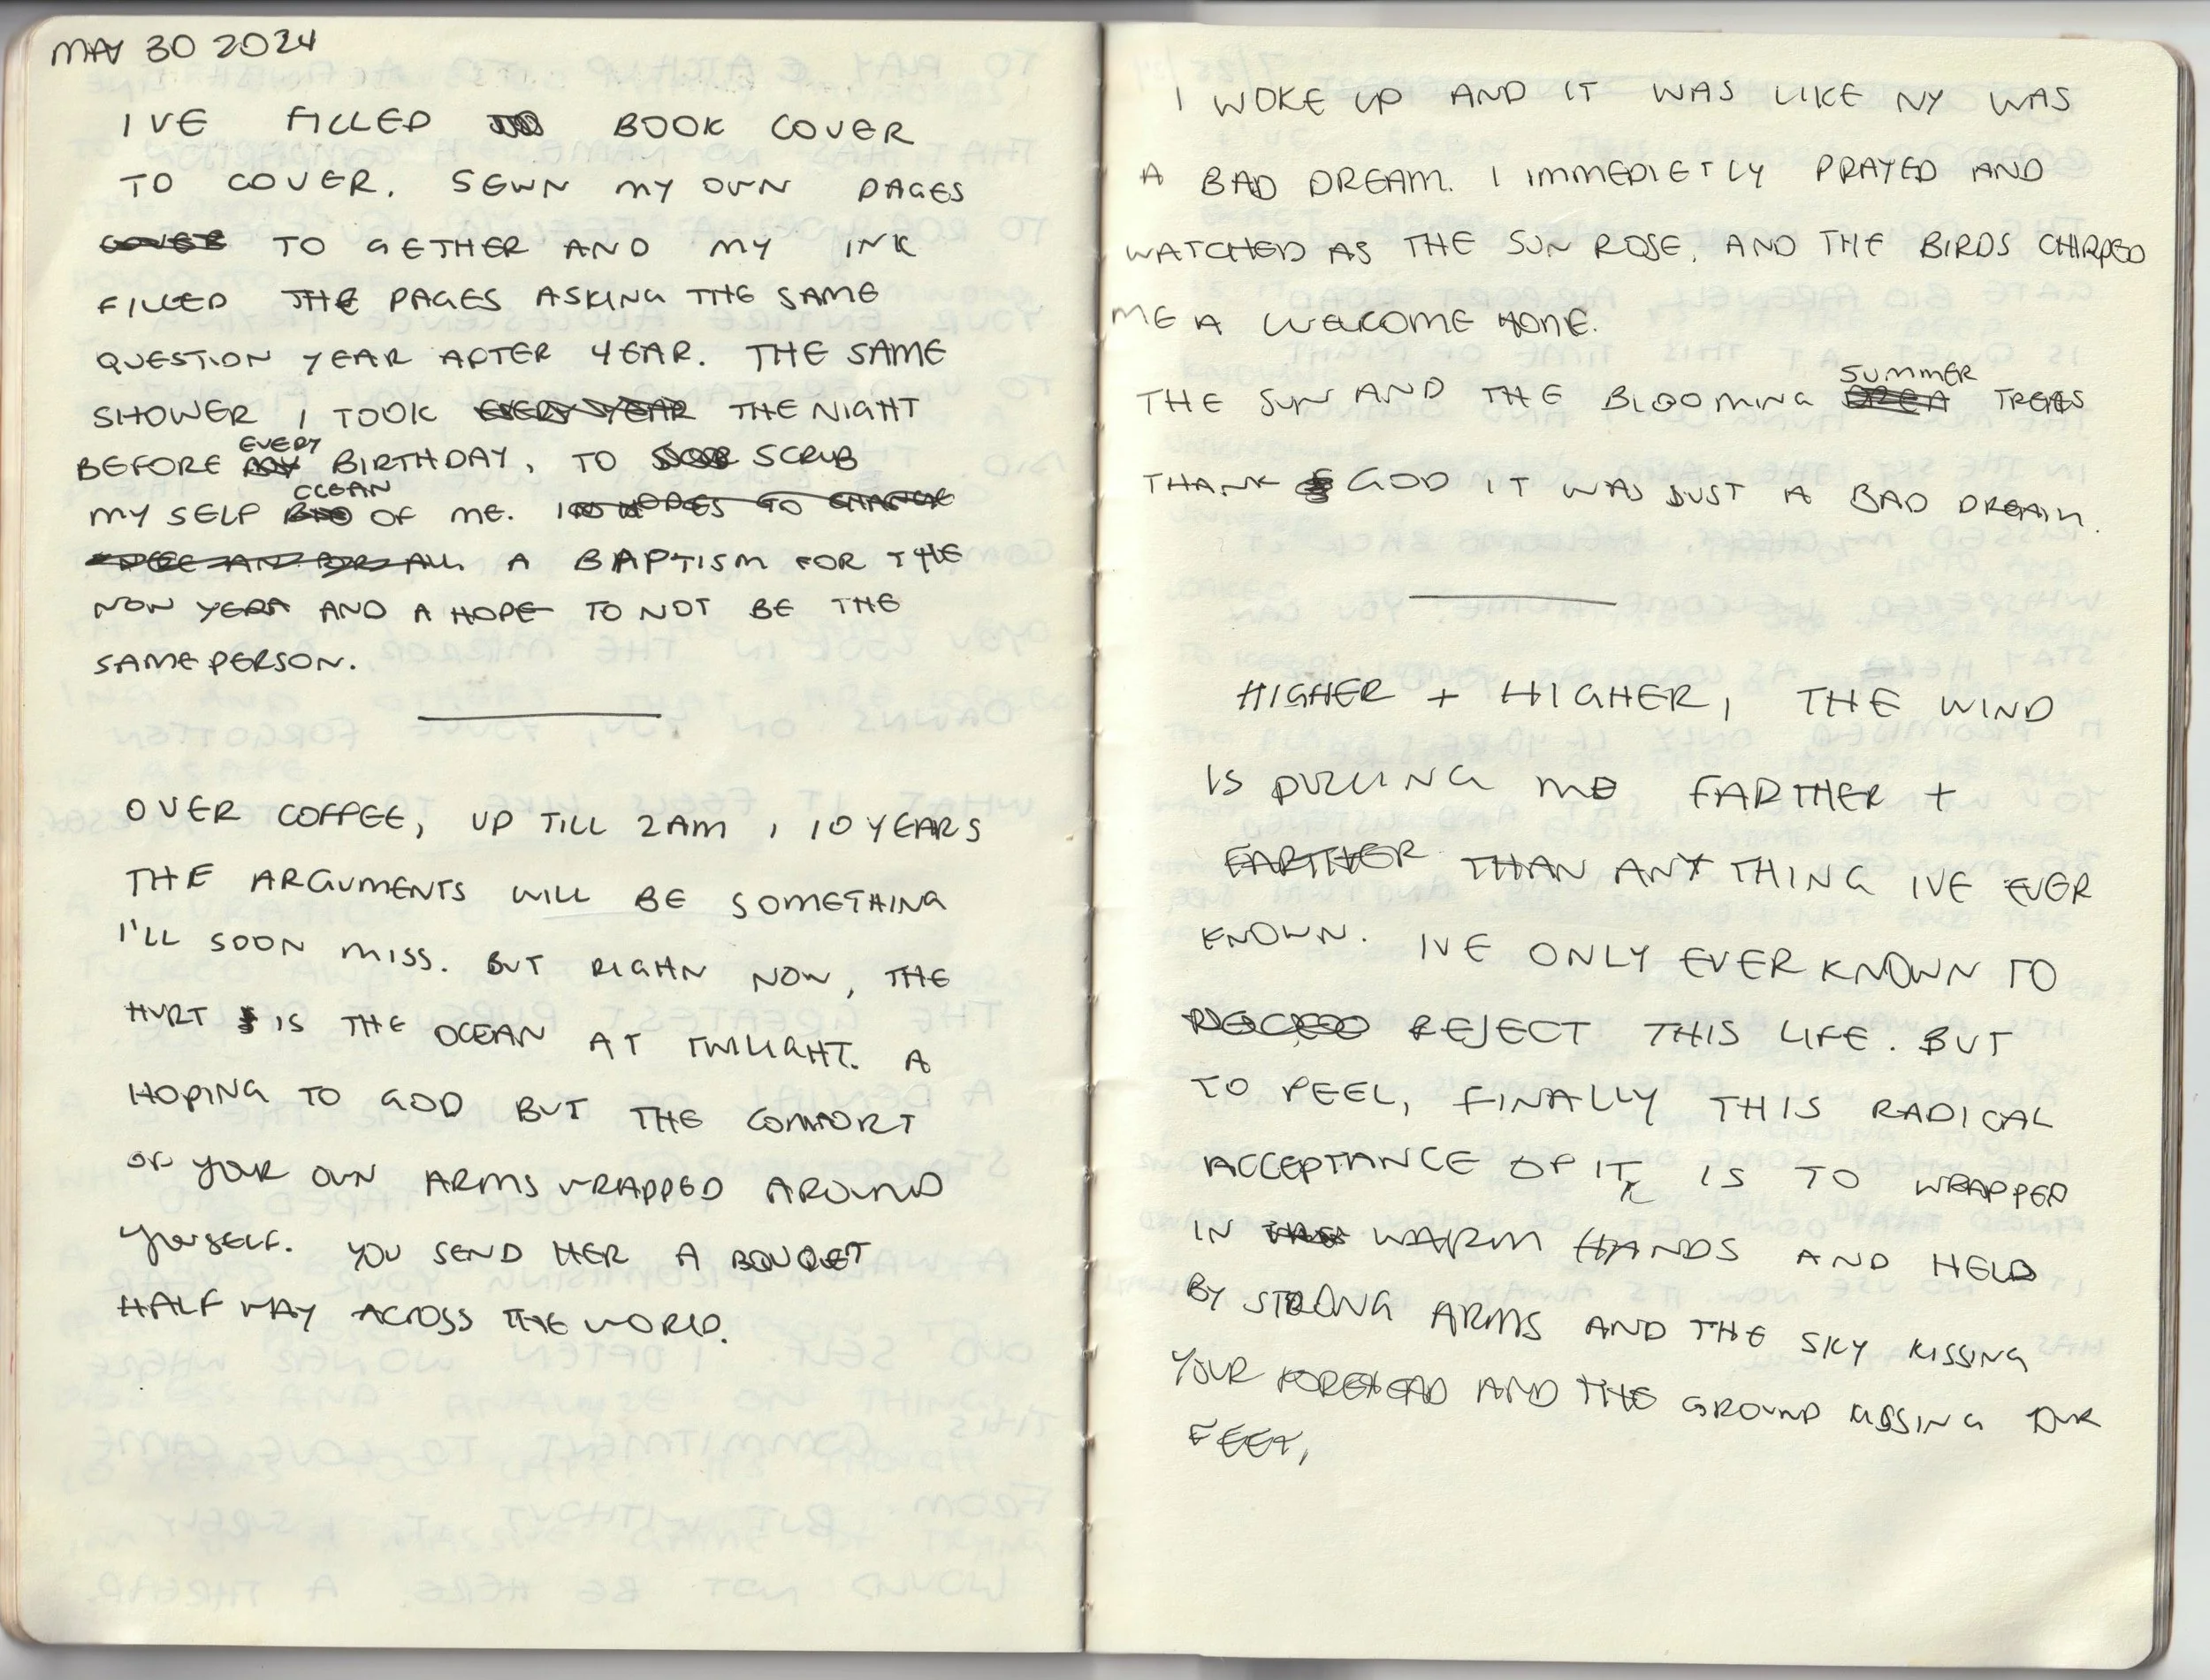 MAY 30 2024
IVE FILLED BOOK COVER
TO COVER. SEWN MY OWN PAGES
TO GETHER AND MY INK
FILLED THE PAGES ASKING THE SAME
QUESTION YEAR AFTER YEAR. THE SAME
SHOWER I TOOK EVERY YEAR THE NIGHT
BEFORE EVERY BIRTHDAY, TO SCRUB
MY SELF CLEAN OF ME. IN HOPES TO CHANGE
ONCE AND FOR ALL A BAPTISM FOR THE
NOW YEAR AND A HOPE TO NOT BE THE
SAME PERSON.
OVER COFFEE, UP TILL 2AM, 10 YEARS
THE ARGUMENTS WILL BE SOMETHING
I'LL SOON MISS. BUT RIGHN NOW, THE
HURT IS THE OCEAN AT TWILIGHT. A
HOPING TO GOD BUT THE COMFORT
OF YOUR OWN ARMS WRAPPED AROUND
YOURSELF. YOU SEND HER A BOUQUET
HALF WAY ACROSS THE WORLD.
I WOKE UP AND IT WAS LIKE NY WAS
A BAD DREAM. I IMMEDIETLY PRAYED AND
WATCHED AS THE SUN ROSE, AND THE BIRDS CHIRPED
ME A WELCOME HOME.
THE SUN AND THE BLOOMING SUMMER TREES
THANK GOD IT WAS JUST A BAD DREAM.
HIGHER + HIGHER, THE WIND
IS PULLING ME FARTHER +
FARTHER THAN ANYTHING IVE EVER
KNOWN. IVE ONLY EVER KNOWN TO
REJECT THIS LIFE. BUT
TO FEEL, FINALLY THIS RADICAL
ACCEPTANCE OF IT, IS TO WRAPPED
IN WARM HANDS AND HELD
BY STRONG ARMS AND THE SKY KISSING
YOUR FOREHEAD AND THE GROUND KISSING YOUR
FEET,